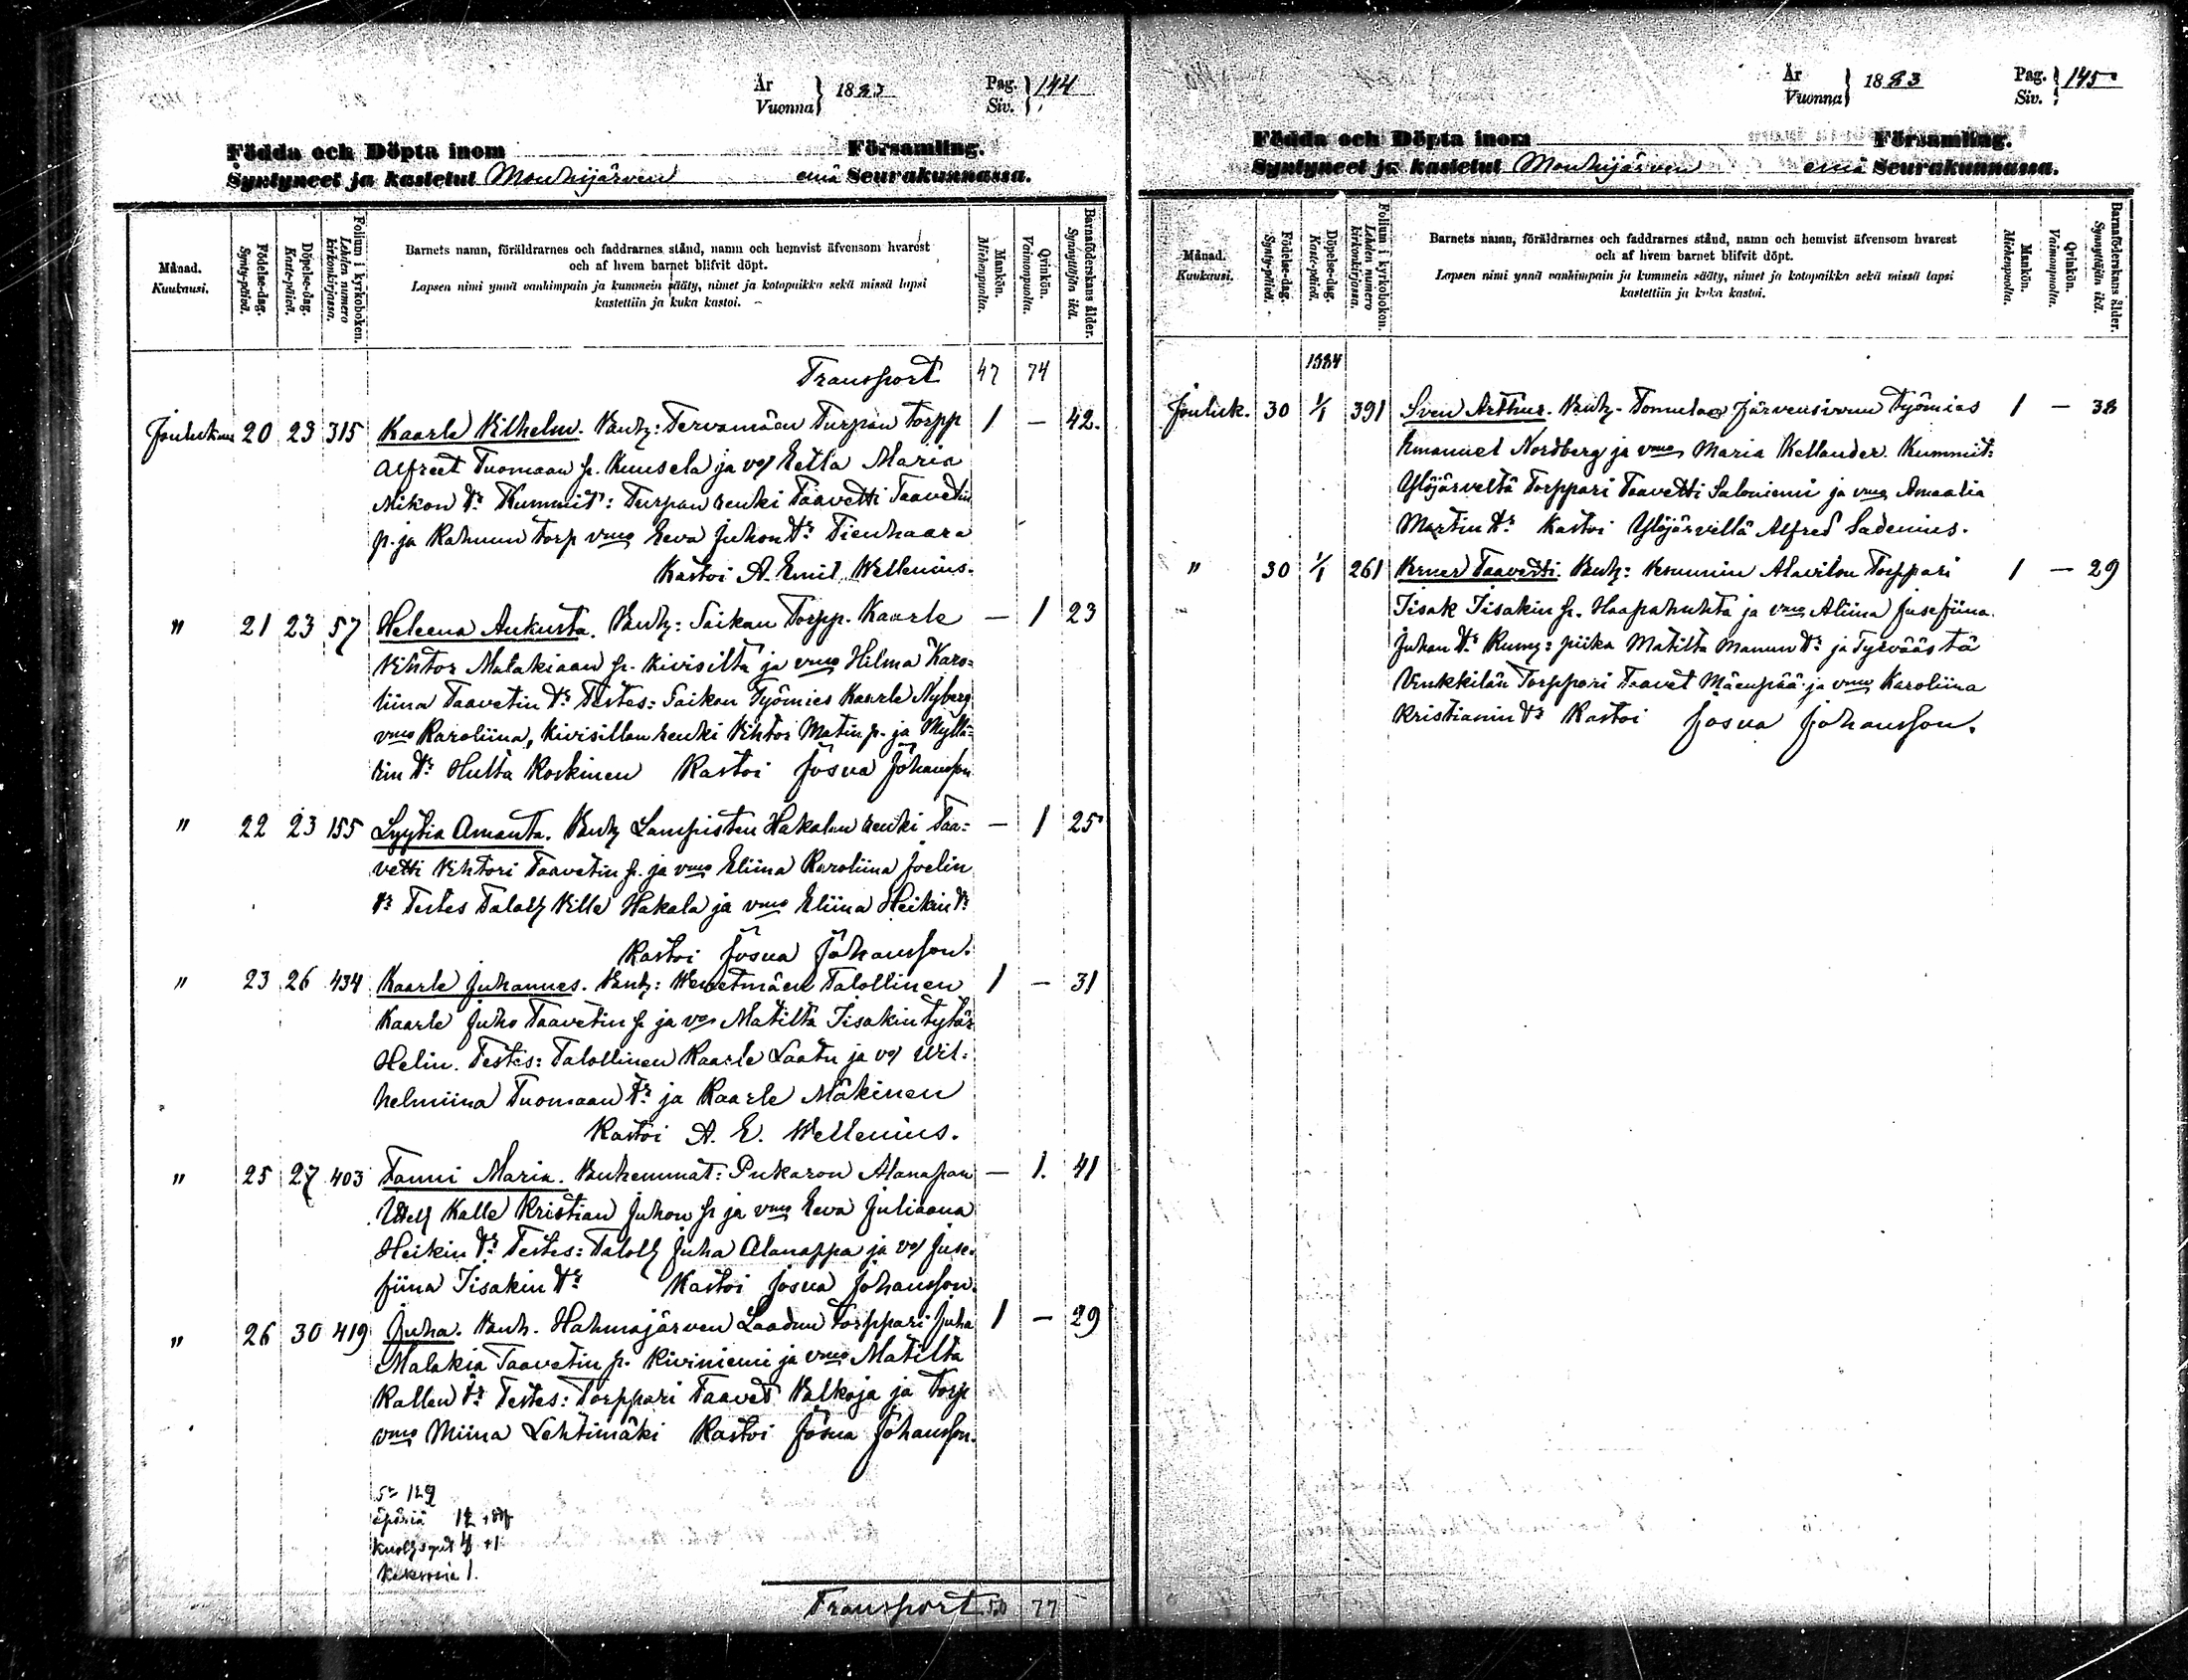 År
Vuonna } 1883 Pag.
Siv. } 144
Födda och Döpta inom Församling.
Syntyneet ja kastetut Mouhijärven emä Seurakunnassa.
Månad.
Kuukausi.
Födelse-dag.
Synty-päivä.
Döpelse-dag.
Kaste-päivä.
Folium i kyrkoboken.
Lehden numero kirkonkirjassa.
Barnets namn, föräldrarnes och faddrarnes stånd, namn och hemvist äfvensom hvarest
och af hvem barnet blifvit döpt.
Lapsen nimi ynnä vanhimpain ja kummein sääty, nimet ja kotopaikka sekä missä lapsi
kastettiin ja kuka kastoi.
Mankön.
Miehenpuolta.
Qvinkön.
Vaimonpuolta.
Barnaföderskans ålder.
Synnyttäjän ikä.
Transport 47 74
Joulukuu 20 23 315 Kaarle Vilhelm. Vanh: Tervamäen Turpan torpp 1 — 42.
Alfreet Tuomaan p. Kuusela ja vo/ Eetla Maria
Mikon tr Kummit: Turpan renki Taavetti Taavetin
p. ja Rahmun torp vmo Eeva Juhon tr Tienhaara
Kastoi A. Emil Wellenius.
" 21 23 57 Heleena Aukusta. Vanh: Saikan Torpp. Kaarle — 1 23
Vihtor Malakiaan p. Kivisilta ja vmo Hilma Karo=
liina Taavetin tr Testes: Saikan Työmies Kaarle Nyberg
vmo Karoliina, Kivisillan renki Vihtor Matin p. ja Myllä=
rin tr Hulta Koskinen Kastoi Josua Johansson
" 22 23 155 Lyytia Amanta. Vanh Lampisten Hakalan renki Taa= — 1 25
vetti Vihtori Taavetin p. ja vmo Eliina Karoliina Joelin
tr Testes Taloll Ville Hakala ja vmo Eliina Heikin tr
Kastoi Josua Johansson.
" 23 26 434 Kaarle Juhannes. Vanh: Talollinen 1 — 31
Kaarle Juho Taavetin p ja vo Matilta Iisakin tytär
Helin. Testes: Talollinen Kaarle Laatu ja vo/ Wil=
helmiina Tuomaan tr ja Kaarle Mäkinen
Kastoi A. E. Wellenius.
" 25 27 403 Fanni Maria. Vanhemmat: Pukaron Alanapan — 1. 41
Kalle Kristian Juhon p ja vmo Eeva Juliaana
Heikin tr Testes: Taloll Juha Alanappa ja vo/ Juse=
fiina Iisakin tr Kastoi Josua Johansson.
" 26 30 419 Juha. Vanh. Hahmajärven Laadun Torppari Juha 1 — 29
Malakia Taavetin p. Kiviniemi ja vmo Matilta
Kallen tr Testes: Torppari Taavet Valkoja ja torp
vmo Miina Lehtimäki Kastoi Josua Johansson.
129
äpäriä 12
+1
1.
Transport 50 77
År
Vuonna } 1883 Pag.
Siv. } 145
Födda och Döpta inom Församling.
Syntyneet ja kastetut Mouhijärven emä Seurakunnassa.
Månad.
Kuukausi.
Födelse-dag.
Synty-päivä.
Döpelse-dag.
Kaste-päivä.
Folium i kyrkoboken.
Lehden numero kirkonkirjassa.
Barnets namn, föräldrarnes och faddrarnes stånd, namn och hemvist äfvensom hvarest
och af hvem barnet blifvit döpt.
Lapsen nimi ynnä vanhimpain ja kummein sääty, nimet ja kotopaikka sekä missä lapsi
kastettiin ja kuka kastoi.
Mankön.
Miehenpuolta.
Qvinkön.
Vaimonpuolta.
Barnaföderskans ålder.
Synnyttäjän ikä.
1884
Jouluk. 30 1/1 391 Sven Arthur. Vanh. Tomulan Järvensivun Työmies 1 — 38
Emanuel Nordberg ja vmo Maria Kellander. Kummit:
Ylöjärveltä Torppari Taavetti Saloniemi ja vmo Amaalia
Martin tr Kastoi Ylöjärvellä Alfred Sadenius.
" 30 1/1 261 Verner Taavetti. Vanh: Vesunnin Alavilon Torppari 1 — 29
Iisak Iisakin p. Haapahuhta ja vmo Aliina Jusefiina
Juhan tr Kumz: piika Matilta Manun tr ja Tyrväästä
Vinkkilän Torppari Taavet Mäenpää ja vmo Karoliina
Kristianin tr Kastoi Josua Johansson.